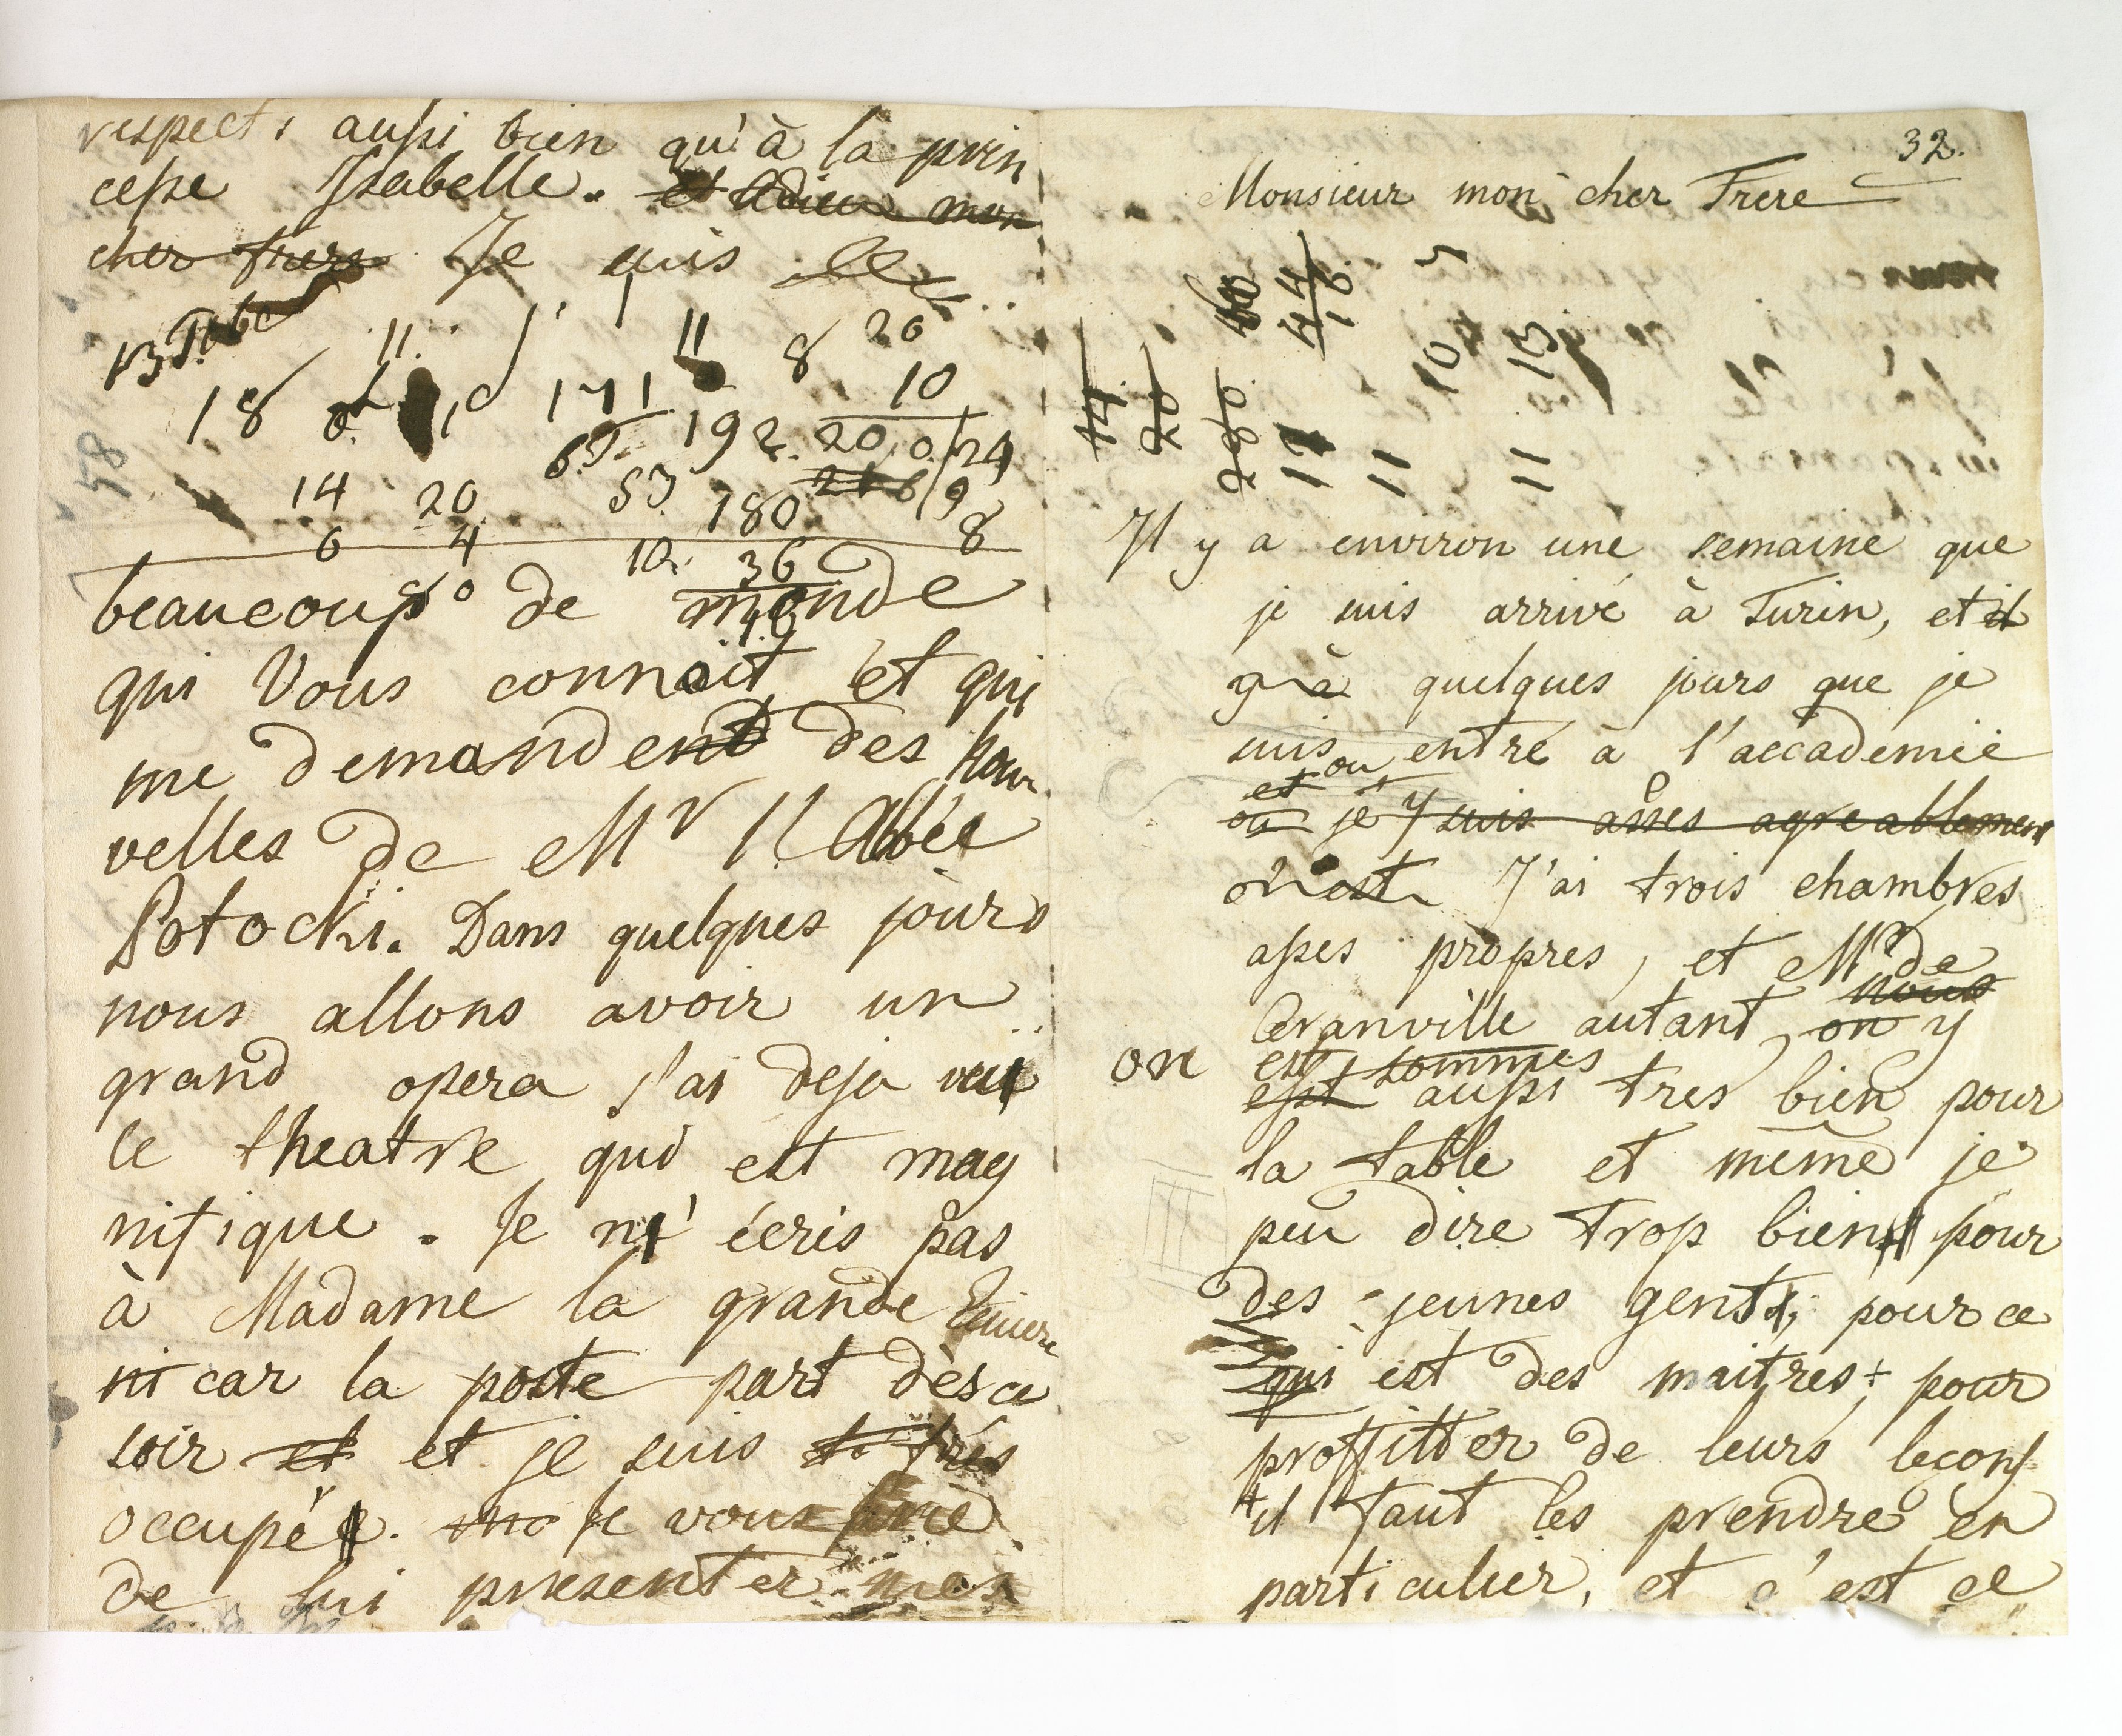 respects aussi bien qu'à la prin
cesse Isabelle. et Adieu mon
cher frere Je suis
11 11 8 20
18 171 10
192 200 24
14 20 69 53 180 9
6 4 10 36 8
beaucoup de monde
qui Vous connoit et qui
me demandent des Nou
velles de Mr l'Abbée
Potocki. Dans quelques jours
nous allons avoir un
grand opera j'ai deja veu
le theatre qui est mag
nifique. Je n'écris pas
à Madame la grande
ni car la poste part dès ce
soir et et je suis très
occupé. Je vous prie
de lui presenter mes
58
32.
Monsieur mon cher Frere
5
10 13
44 16
14 20 280 12 11 11
Il y a environ une semaine que
je suis arrivé à Turin, et il
y a quelques jours que je
suis entré à l'accademie
et ou
ou je y suis asses agreablement
on est J'ai trois chambres
asses propres, et Mr de
nous
Granville autant, on y
on est sommes
est aussi tres bien pour
la table et même je
peu dire trop bien pour
des jeunes gents, pour ce
qui est des maitres; pour
proffitter de leurs leçons
il faut les prendre en
particulier, et c'est ce